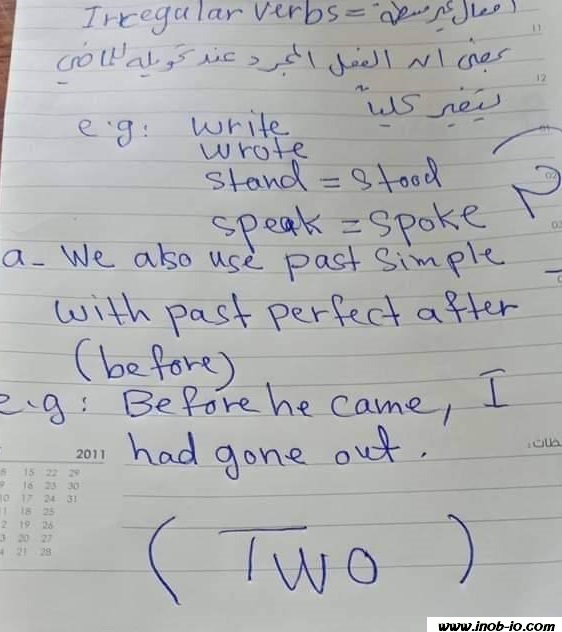 Irregular verbs = افعال غير
بمعنى ان الفعل المجرد عند تحويله للماضي
يتغير كلياً
e.g: write
wrote
stand = stood
speak = spoke
a- We also use past simple
with past perfect after
(before)
e.g: Before he came, I
had gone out.
(Two)
2011
15 22 29
16 23 30
10 17 24 31
18 25
19 26
20 27
21 28
11
12
www.inob-io.com